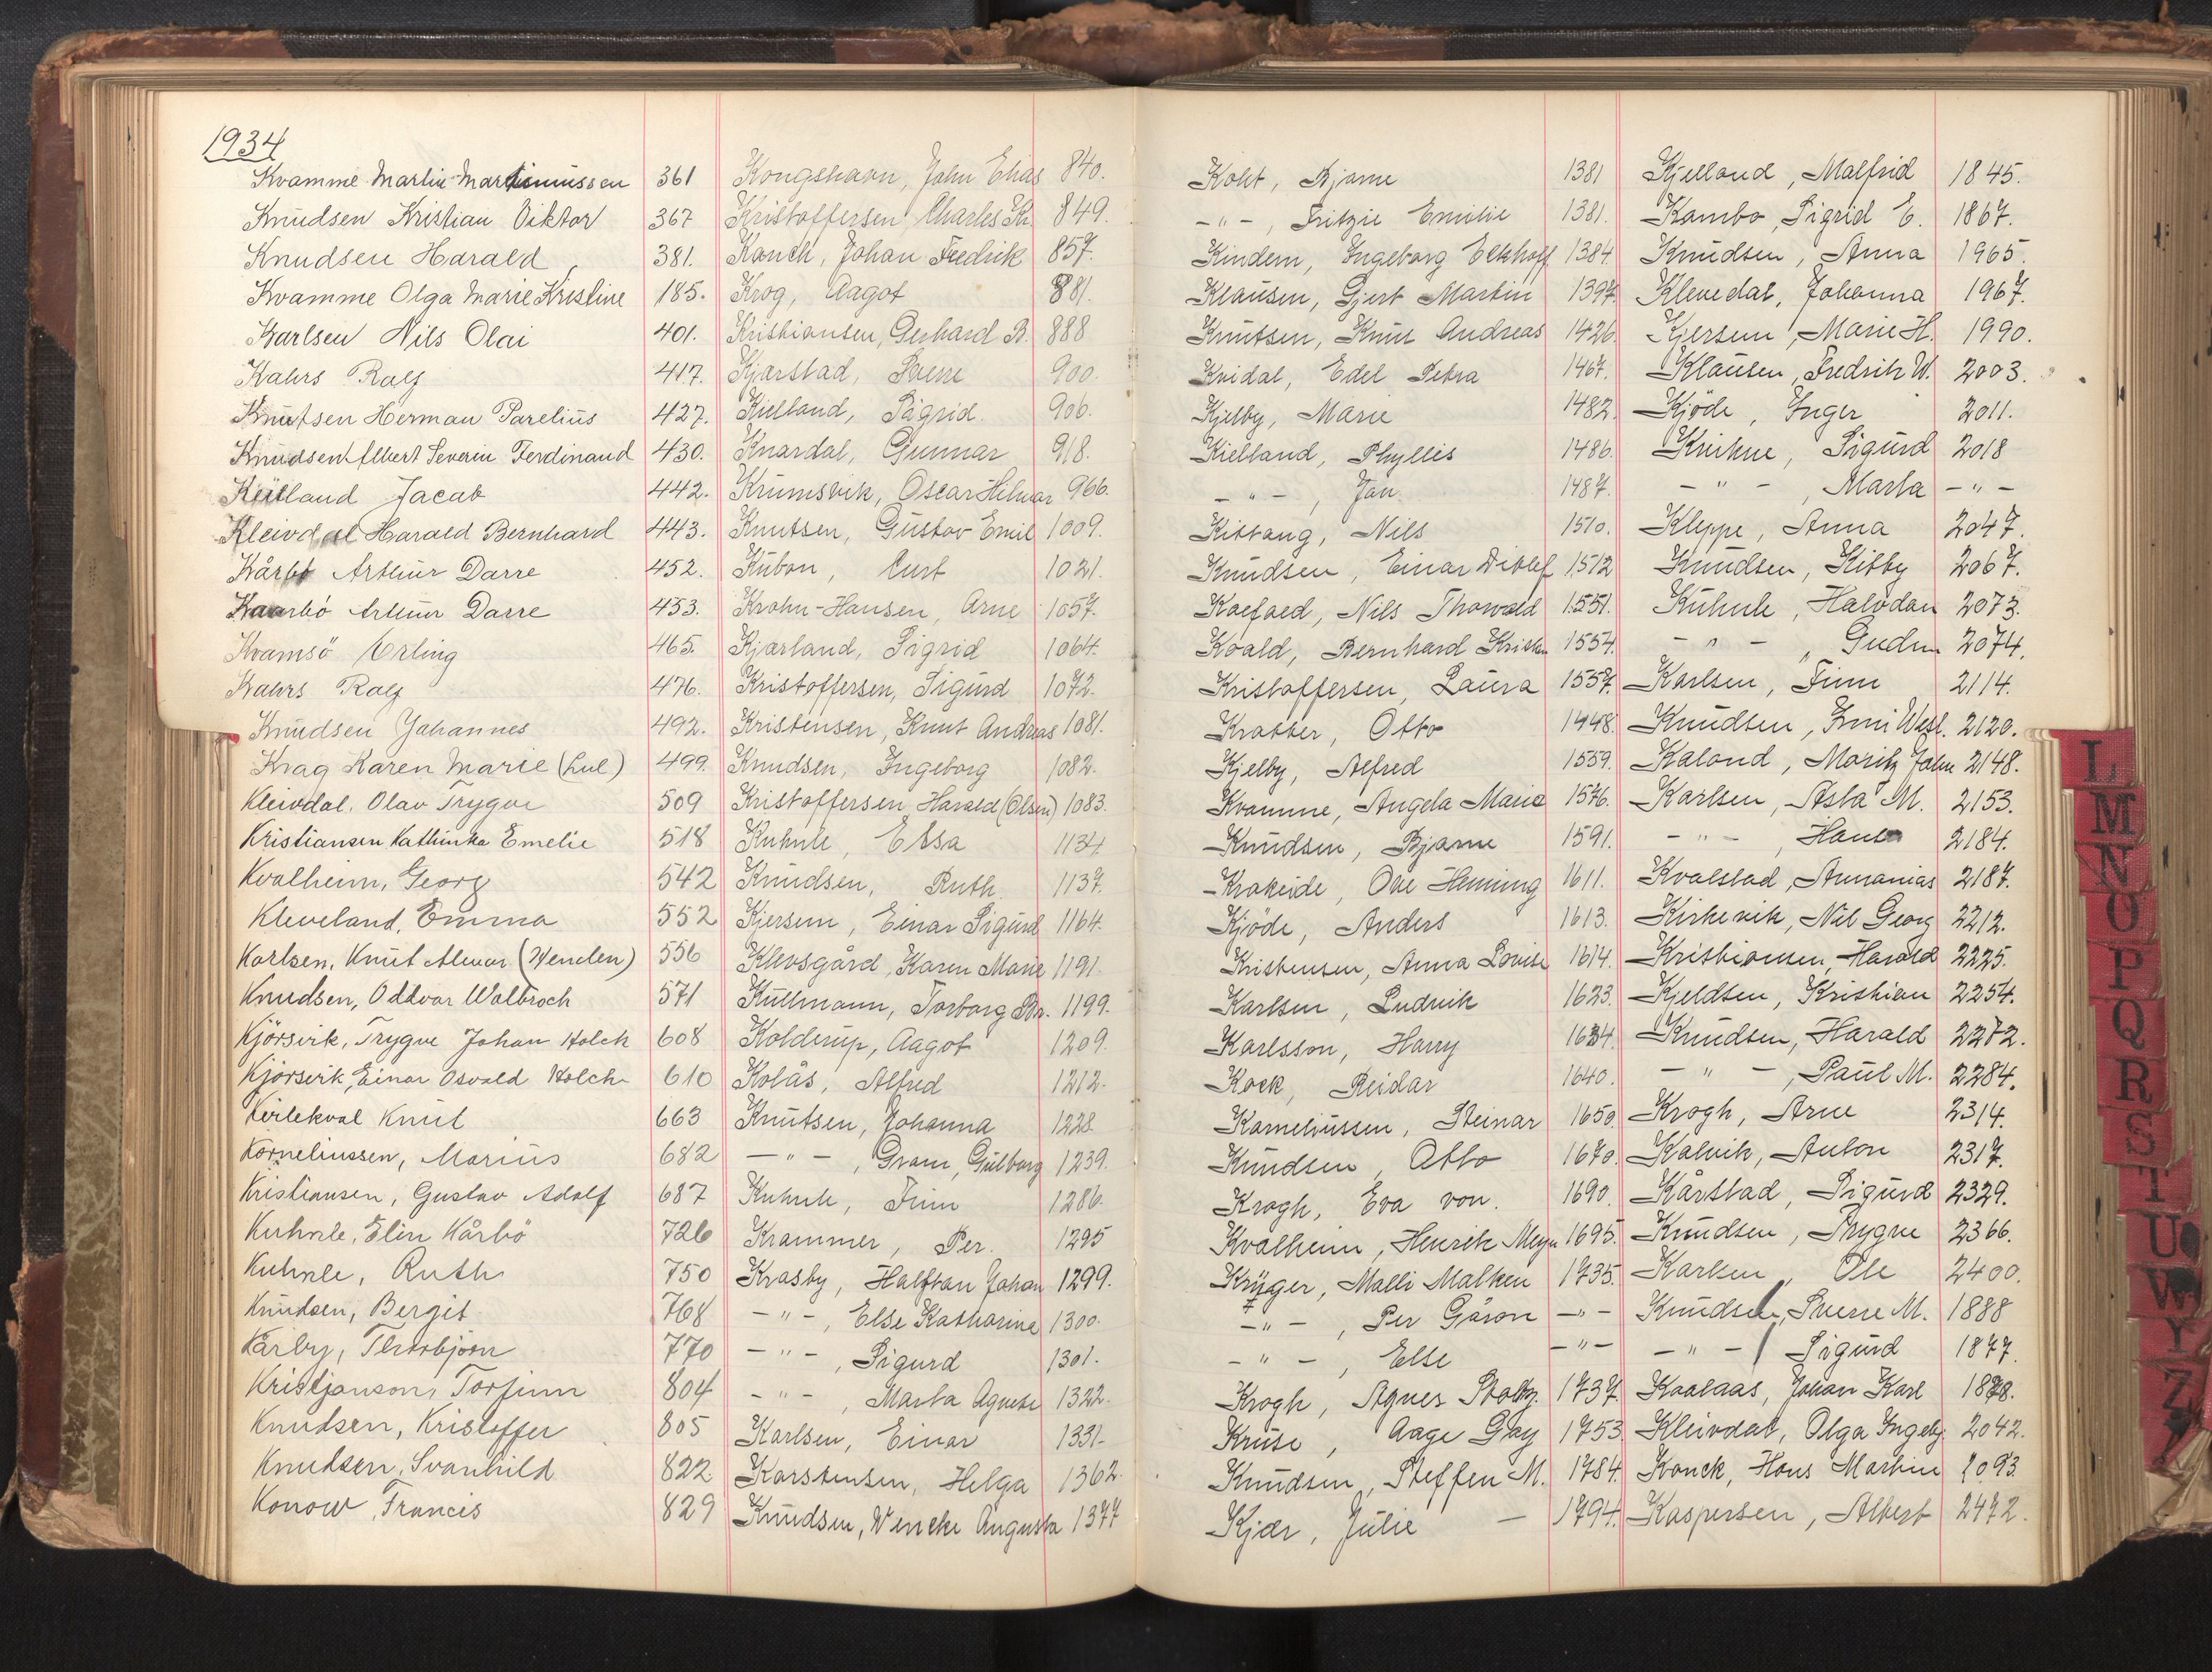 1934
Kvamme Martin Martinussen 361
Knudsen Kristian Viktor 367
Knudsen Harald 381.
Kvamme Olga Marie Kristine 185.
Karlsen Nils Olai 401.
Kahrs Ralf 417.
Knutsen Herman Parelius 427.
Knudsen Albert Severin Ferdinand 430.
Jacob 442.
Kleivdal Harald Bernhard 443.
Kårbø Arthur Darre 452.
Kaarbö Arthur Darre 453.
Kvamsö Erling 465.
Kahrs Ralf 476.
Knudsen Johannes 492.
Krag Karen Marie (Lul) 499.
Kleivdal, Olav Trygve 509
Kristiansen Kathinka Emelie 518
Kvalheim, Georg 542
Kleveland, Emma 552
Karlsen, Knut Almar (Wenden) 556
Knudsen, Oddvar Walbroch 571
Kjörsvik, Trygve Johan Holch 608
Kjörsvik, Einar Osvald Holch 610
Knut 663
Korneliussen, Marius 682
Kristiansen, Gustav Adolf 687
Kuhnle, Elin Kårbö 726
Kuhnle, Ruth 750
Knudsen, Bergit 768
Kårby, Thorbjörn 770
Kristjanson, Torfinn 804
Knudsen, Kristoffer 805
Knudsen, Svanhild 822
Konow, Francis 829
Kongshavn, John Elias 840.
Kristoffersen, Charles Kr. 849.
Johan Fredrik 857.
Krog, Aagot 881.
Kristiansen, Gerhard B. 888
Kjarstad, Sverre 900.
Kielland, Sigrid 906.
Knardal, Gunnar 918.
Krumsvik, Oscar Helmar 966.
Knutsen, Gustav Emil 1009.
Kubon, Curt 1021.
Krohn-Hansen, Arne 1057.
Kjarland, Sigrid 1064.
Kristoffersen, Sigurd 1072.
Kristensen, Knut Andreas 1081.
Knudsen, Ingeborg 1082.
Kristoffersen Harald (Olsen) 1083.
Kuhnle, Ebba 1134
Knudsen, Ruth 1137.
Kjersem, Einar Sigurd 1164.
Klevsgård, Karen Marie 1191.
Kullmann, Torborg 1199.
Kolderup, Aagot 1209.
Kolås, Alfred 1212.
Knutsen, Johanna 1228
— " — , Gram, Gulborg 1239.
Kuhnle, Finn 1286.
Krammer, Per. 1295
Krasby, Halftan Johan 1299.
— " — , Else Katharina 1300.
— " — , Sigurd 1301.
— " — , Marta Agnete 1322.
Karlsen, Einar 1331.
Karstensen, Helga 1362.
Knudsen, Wencke Augusta 1377
Koht, Bjarne 1381
— " — , Fritzie Emilie 1381.
Kindem, Ingeborg Eckhoff 1384.
Klausen, Gjert Martin 1397.
Knutsen, Knut Andreas 1426.
Kvidal, Edel Petra 1467.
Kjelby, Marie 1482.
Kielland, Phyllis 1486.
— " — , Jan 1487.
Kittang, Nils 1510.
Knudsen, Einar Ditlef 1512
Koefoed, Nils Thorvald 1551.
Kvald, Bernhard Kristen 1554.
Kristoffersen, Laura 1557.
Kratter, Otto 1448.
Kjelby, Alfred 1559.
Kvamme, Angela Marie 1576.
Knudsen, Bjarne 1591.
Krakeide, Ove Henning 1611.
Kjöde, Anders 1613.
Kristensen, Anna Lovise 1614.
Karlsen, Ludvik 1623.
Karlsson, Harry 1634.
Kock, Reidar 1640.
Korneliussen, Steinar 1650.
Knudsen, Otto 1670.
Krogh, Eva von. 1690.
Kvalheim, Henrik Meyer 1695.
Krüger, Malli Malken 1735.
— " — , Per Gåson — " —
— " — , Else — " —
Krogh, Agnes Stoltz. 1737.
Kruse, Aage Gay 1753
Knudsen, Steffen M. 1784.
Kjær, Julie — 1794.
Kjelland, Malfrid 1845.
Kambo, Sigrid E. 1867.
Knudsen, Anna 1965.
Klevedal, Johanna 1967.
Kjersem, Marie H. 1990.
Klausen, Fredrik W. 2003.
Kjöde, Inger 2011.
Sigurd 2018
— " — , Marta — " —
Kleppe, Anna 2047.
Knudsen, Kitty 2067.
Kuhnle, Halvdan 2073.
— " — , Gudrun 2074.
Karlsen, Finn 2114.
Knudsen, Imi Wesl. 2120.
Kaland, Moritz John 2148.
Karlsen, Asta M. 2153.
— " — , Hans 2184.
Kvalstad, Annanias 2187.
Kirkevik, Nil Georg 2212.
Kristiansen, Harald 2225.
Kjeldsen, Kristian 2254.
Knudsen, Harald 2272.
— " — , Paul M. 2284.
Krogh, Arne 2314.
Kalvik, Anton 2317.
Kårstad, Sigurd 2329.
Knudsen, Trygve 2366.
Karlsen, Ole 2400.
Knudsen, Sverre M. 1888
— " — Sigurd 1877.
Kaalaas, Johan Karl 1878.
Kleivdal, Olga Ingebj. 2042.
Kvanck, Hans Martin 2093.
Kaspersen, Albert 2472.
L
M
N
O
P
Q
R
S
T
U
W
Y
Z